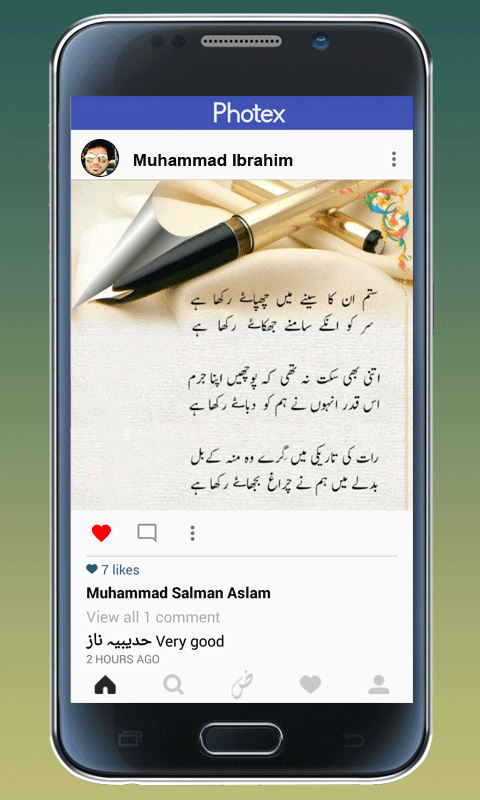 Photex
Muhammad Ibrahim
ستم ان کا سینے میں چھپائے رکھا ہے
سر کو انکے سامنے جھکائے رکھا ہے
اتنی بھی سکت نہ تھی کہ پوچھیں اپنا جرم
اس قدر انہوں نے ہم کو دبائے رکھا ہے
رات کی تاریکی میں گِرے وہ منہ کے بل
بدلے میں ہم نے چراغ بجھائے رکھا ہے
7 likes
Muhammad Salman Aslam
View all 1 comment
حدیبیہ ناز Very good
2 HOURS AGO
ض